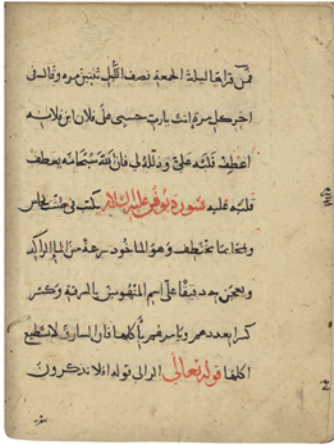 فمن قراها ليلة الجمعة نصف الليل ثنتين مره وقال في
اخر كل مرة انت يا رب حسبى على فلان ابن فلانه
اعطف قلبه على وذلله لى فان الله سبحانه يعطف
قلبه عليه سورة يونس عليه السلام يكتب فى طشت نحاس
من الما الراكد
ويعجن به دقيقا على اسم المتهومين بالسرقة وكسر
كسرا بعددهم ويامرهم باكلها فان السارق لا يستطيع
اكلها قوله تعالى الر الى قوله افلا تذكرون